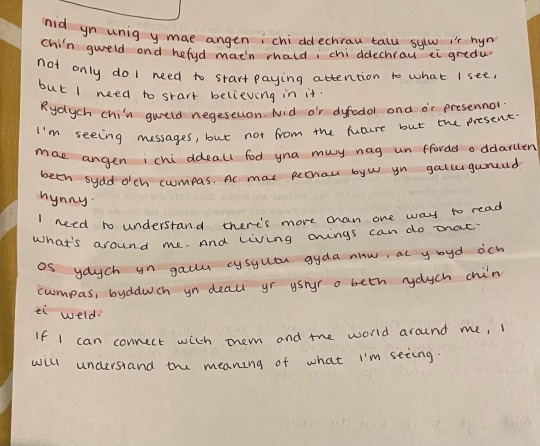 nid yn unig y mae angen i chi ddechrau talu sylw i'r hyn
chi'n gweld ond hefyd mae'n rhaid i chi ddechrau ei gredu.
not only do I need to start paying attention to what I see,
but I need to start believing in it.
Rydych chi'n gweld negeseuon. Nid o'r dyfodol ond o'r presennol.
I'm seeing messages, but not from the future but the present.
mae angen i chi ddeall fod yna mwy nag un ffordd o ddarllen
beth sydd o'ch cwmpas. Ac mae pethau byw yn gallu gwneud
hynny.
I need to understand there's more than one way to read
what's around me. And living things can do that.
os ydych yn gallu cysylltu gyda nhw, ac y byd o'ch
cwmpas, byddwch yn deall yr ystyr o beth rydych chi'n
ei weld.
If I can connect with them and the world around me, I
will understand the meaning of what I'm seeing.